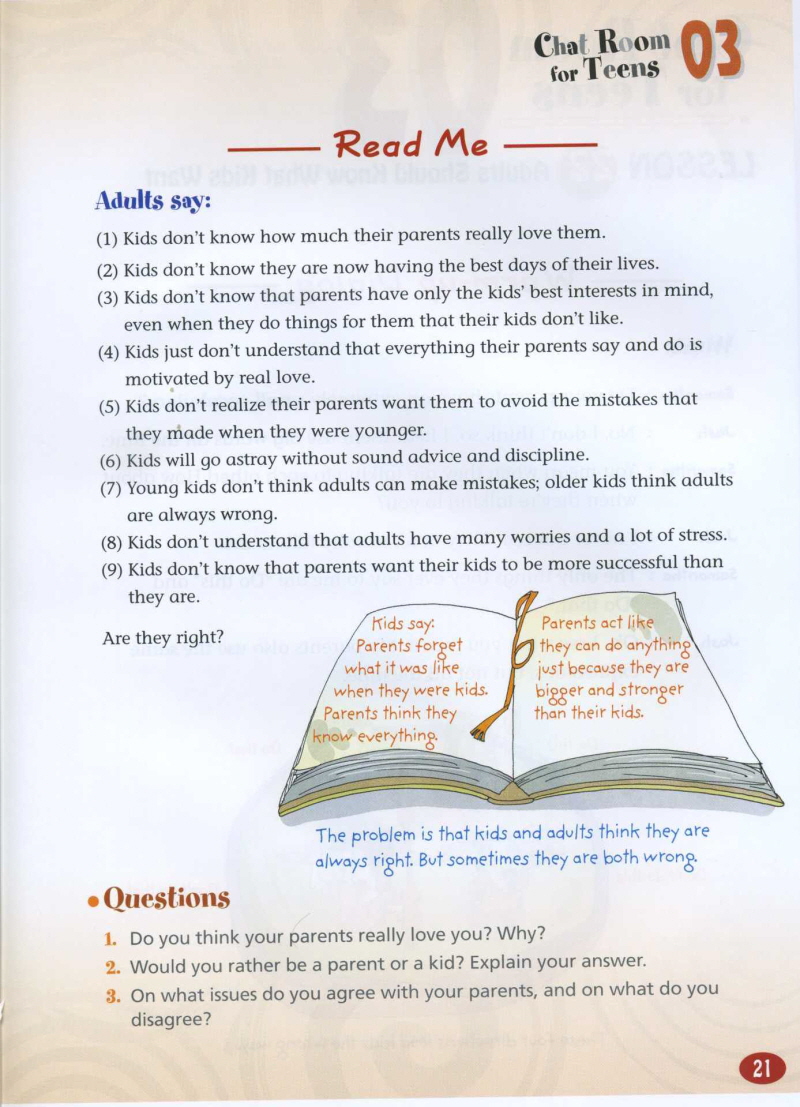 Chat Room
for Teens
03
Read Me
Adults say:
(1) Kids don't know how much their parents really love them.
(2) Kids don't know they are now having the best days of their lives.
(3) Kids don't know that parents have only the kids' best interests in mind,
even when they do things for them that their kids don't like.
(4) Kids just don't understand that everything their parents say and do is
motivated by real love.
(5) Kids don't realize their parents want them to avoid the mistakes that
they made when they were younger.
(6) Kids will go astray without sound advice and discipline.
(7) Young kids don't think adults can make mistakes; older kids think adults
are always wrong.
(8) Kids don't understand that adults have many worries and a lot of stress.
(9) Kids don't know that parents want their kids to be more successful than
they are.
Are they right?
Kids say:
Parents forget
what it was like
when they were kids.
Parents think they
know everything.
Parents act like
they can do anything
just because they are
bigger and stronger
than their kids.
The problem is that kids and adults think they are
always right. But sometimes they are both wrong.
• Questions
1. Do you think your parents really love you? Why?
2. Would you rather be a parent or a kid? Explain your answer.
3. On what issues do you agree with your parents, and on what do you
disagree?
21